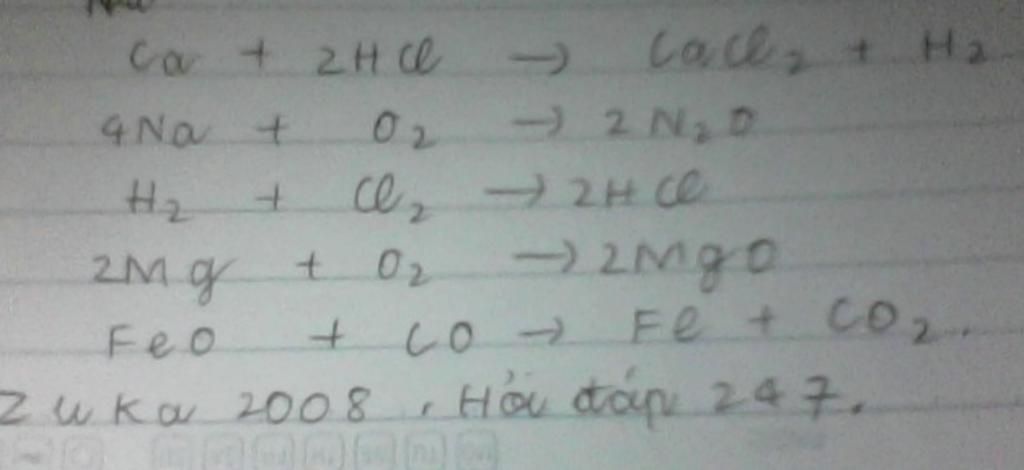 Ca + 2HCl → CaCl₂ + H₂
4Na + O₂ → 2N₂O
H₂ + Cl₂ → 2HCl
2Mg + O₂ → 2MgO
FeO + CO → Fe + CO₂.
Zuka 2008, Hỏi đáp 247.